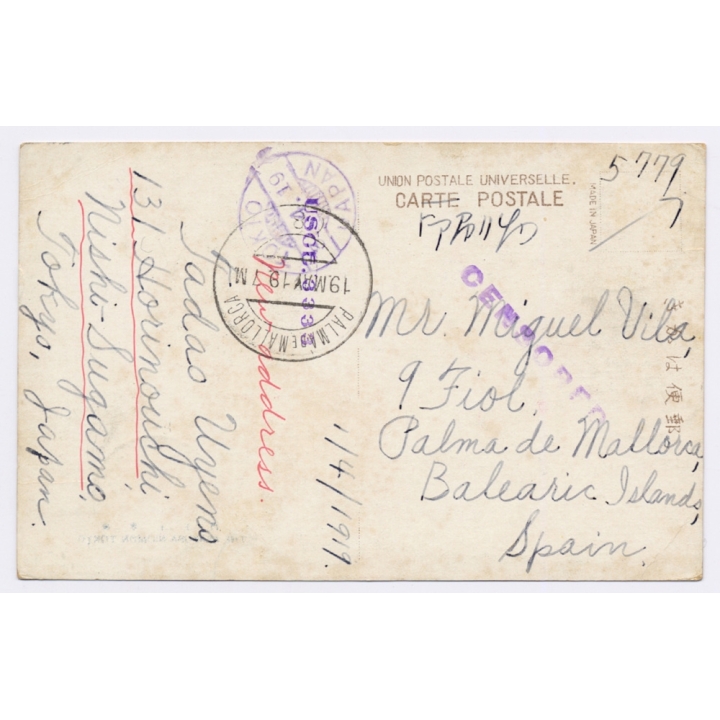 UNION POSTALE UNIVERSELLE.
CARTE POSTALE
MADE IN JAPAN
郵便はがき
5779
CENSORED
Mr. Miguel Vila,
9 Fiol,
Palma de Mallorca,
Balearic Islands,
Spain.
JAPAN
19
PALMA DE MALLORCA
19.MAY.19
New address.
Tadao Uyeno,
131 Horinouchi,
Nishi-Sugamo,
Tokyo, Japan.
1/4/1919.